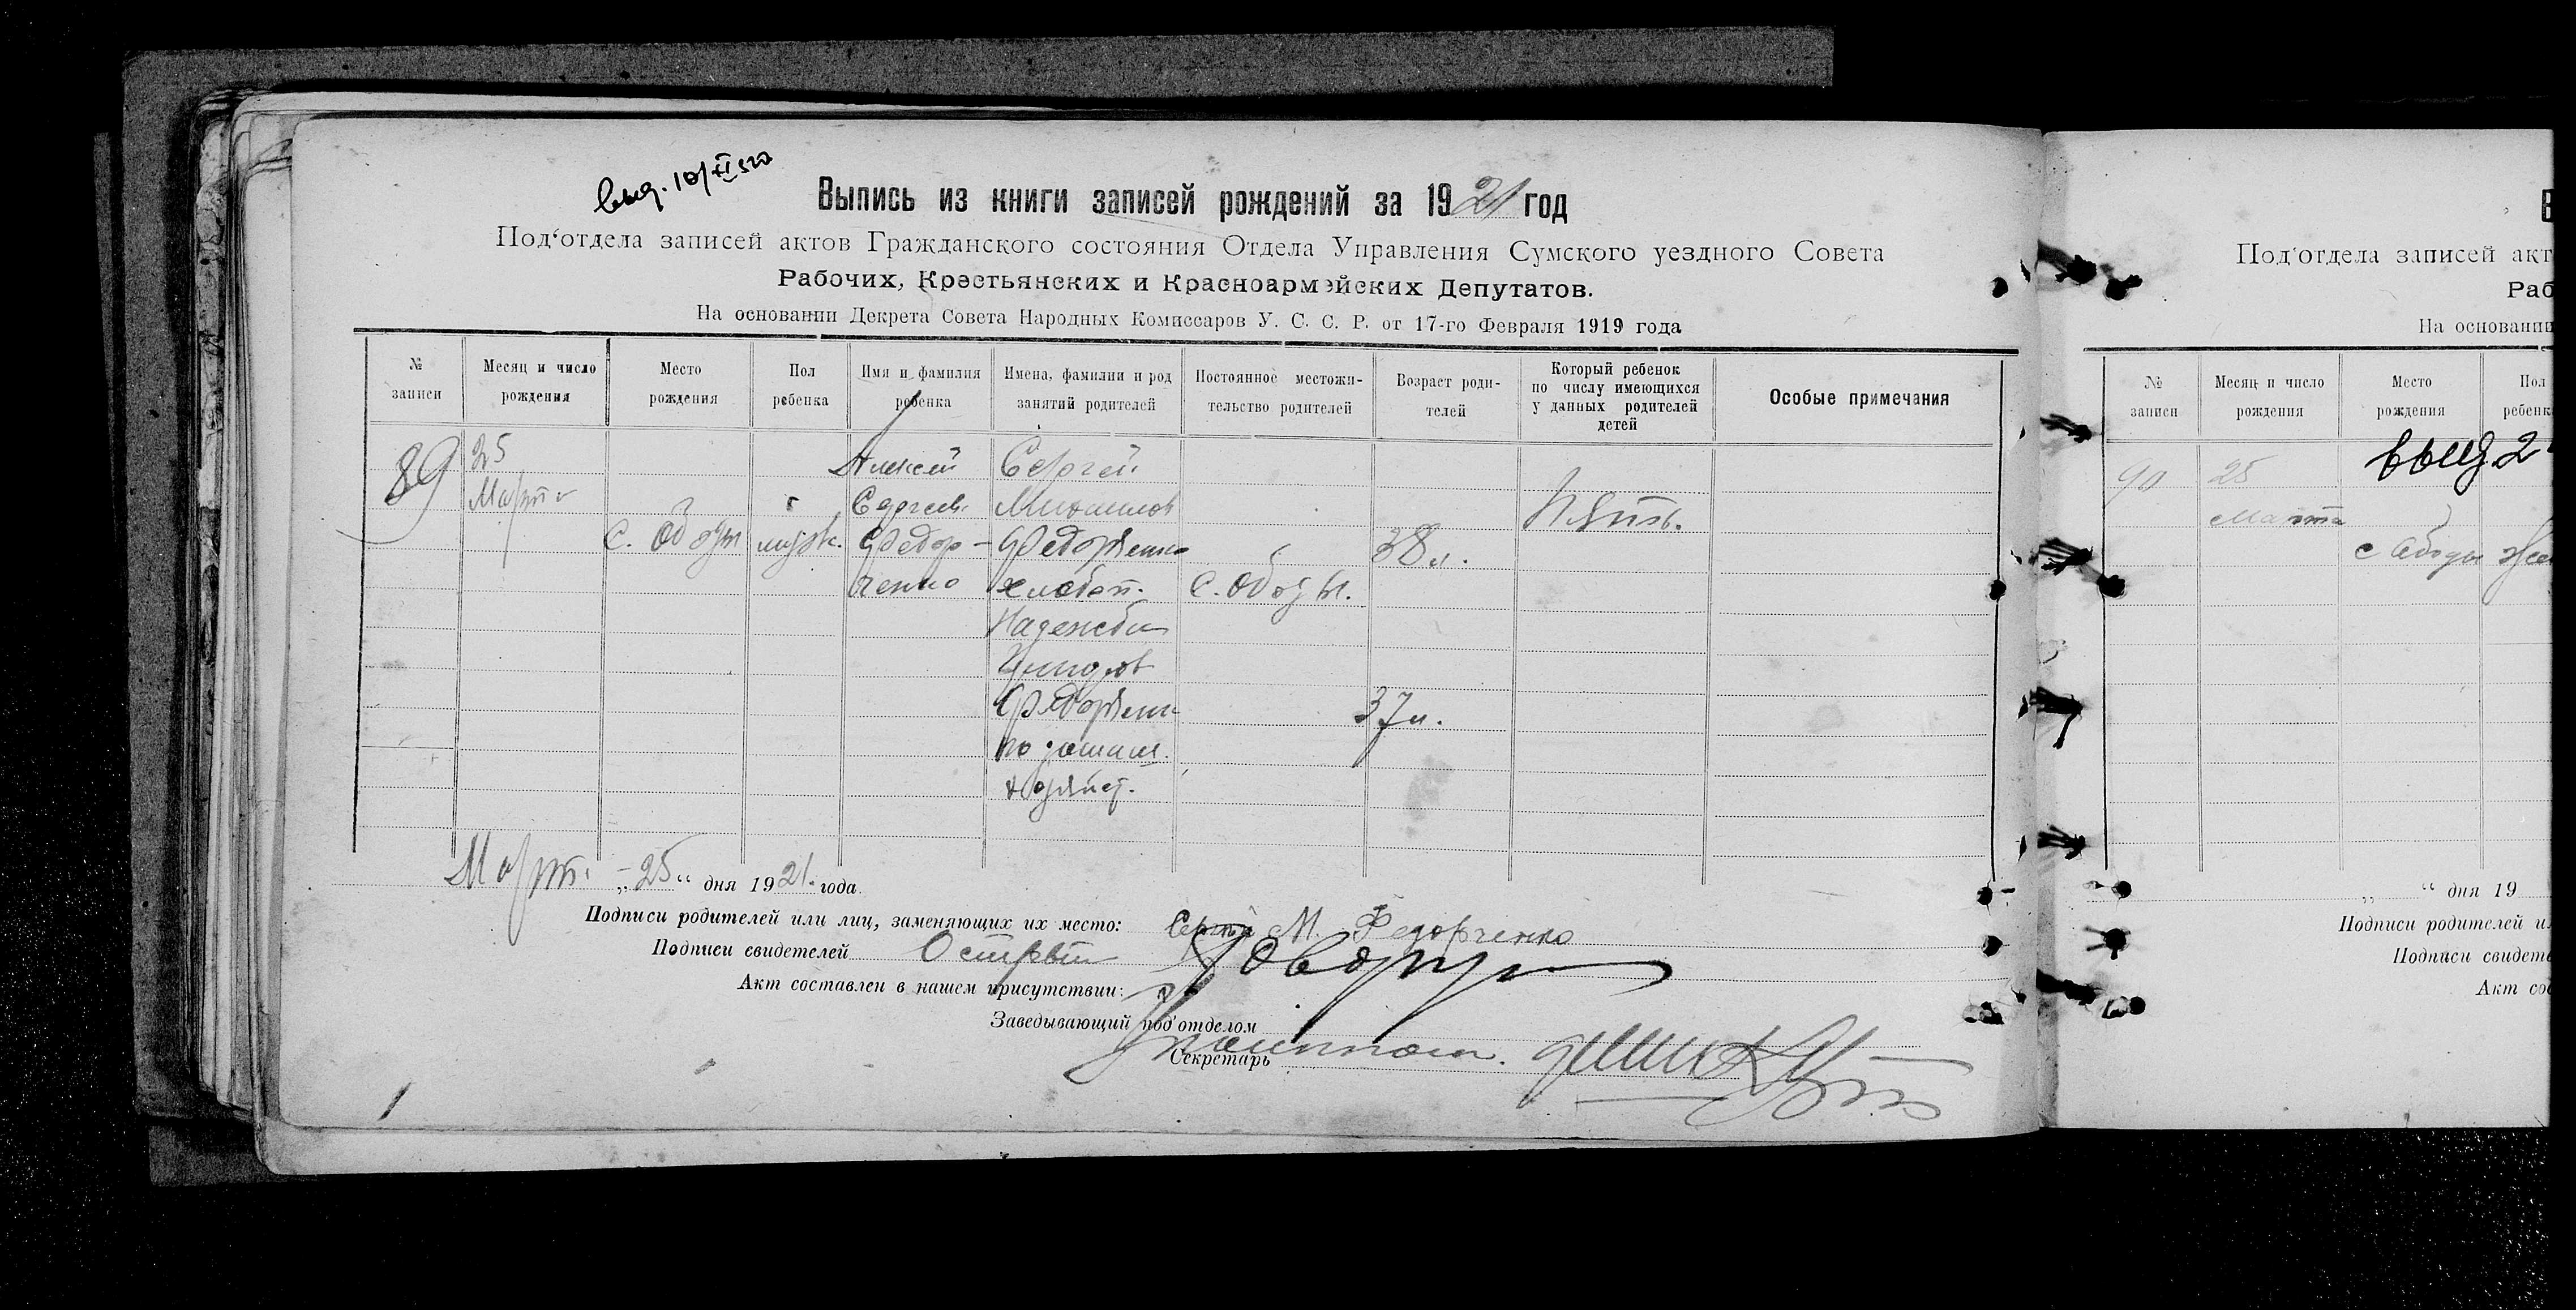 выд. 10/XI 52г
Выпись из книги записей рождений за 1921 год
Под‘отдела записей актов Гражданского состояния Отдела Управления Сумского уездного Совета
Рабочих, Крестьянских и Красноармейских Депутатов.
На основании Декрета Совета Народных Комиссаров У. С. С. Р. от 17-го Февраля 1919 года
№ записи
Месяц и число рождения
Место рождения
Пол ребенка
Имя и фамилия ребенка
Имена, фамилии и род занятий родителей
Постоянное местожительство родителей
Возраст родителей
Который ребенок по числу имеющихся у данных родителей детей
Особые примечания
89
25
Марта
с. Ободы
мужск.
Алексей
Сергеев.
Федор-
ченко
Сергей
Михайлов
Федорченко
хлебоп.
Надежда
Федорченк
по домаш.
хозяйст.
с. Ободы.
38 л.
37 л.
Пять.
Март. „25“ дня 1921. года.
Подписи родителей или лиц, заменяющих их место: Сергей М. Федорченко
Подписи свидетелей
Акт составлен в нашем присутствии:
Заведывающий под‘отделом
Секретарь
Под‘отдела записей акт
Раб
На основании
№ записи
Месяц и число рождения
Место рождения
Пол ребенк
90
25
Марта
выд 2
с Ободы
“ дня 19
Подписи родителей и
Подписи свидете
Акт сос